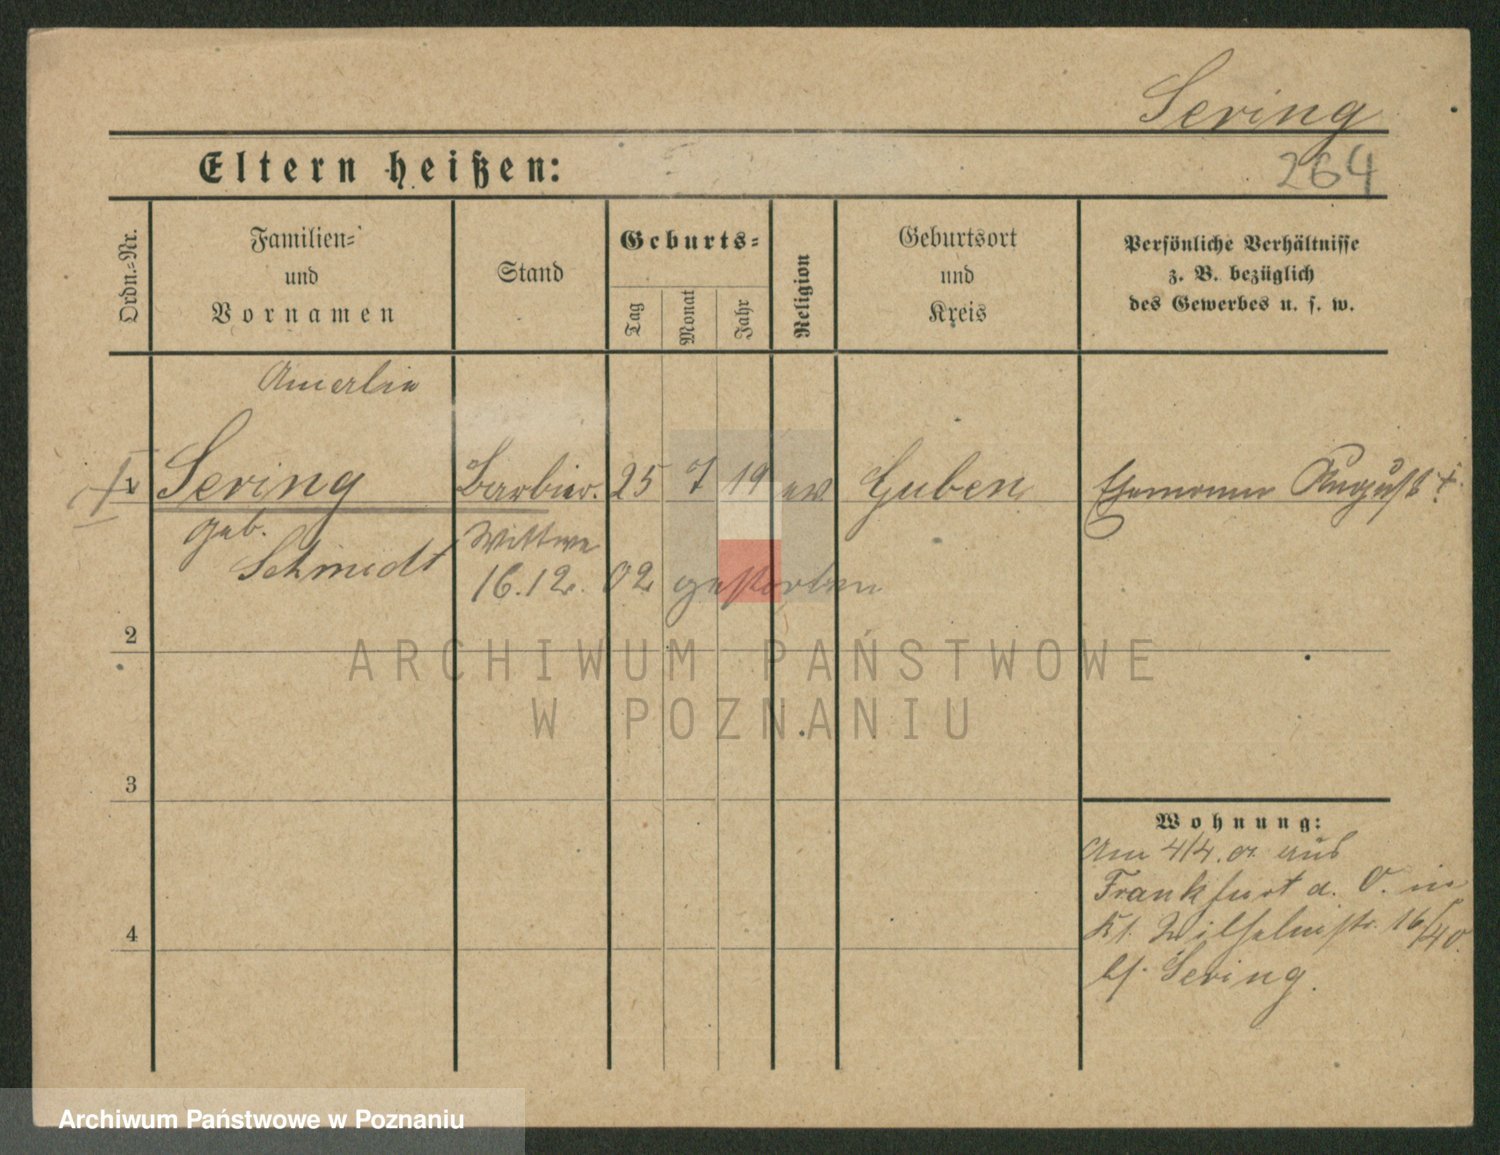 Sering
264
Eltern heißen:
Ordn.=Nr.
Familien=
und
Vornamen
Stand
Geburts=
Tag
Monat
Jahr
Religion
Geburtsort
und
Kreis
Persönliche Verhältnisse
z. B. bezüglich
des Gewerbes u. s. w.
Amalie
1 Sering Barbier. 25 7 19 ev Guben Ehemann August †.
geb. Wittwe
Schmidt 16.12. 02 gestorben
2
ARCHIWUM PAŃSTWOWE
W POZNANIU
3
Wohnung:
Am 4/4. cr. aus
Frankfurt a. O. in
4
Wilhelmstr. 16/
bei Sering.
Archiwum Państwowe w Poznaniu